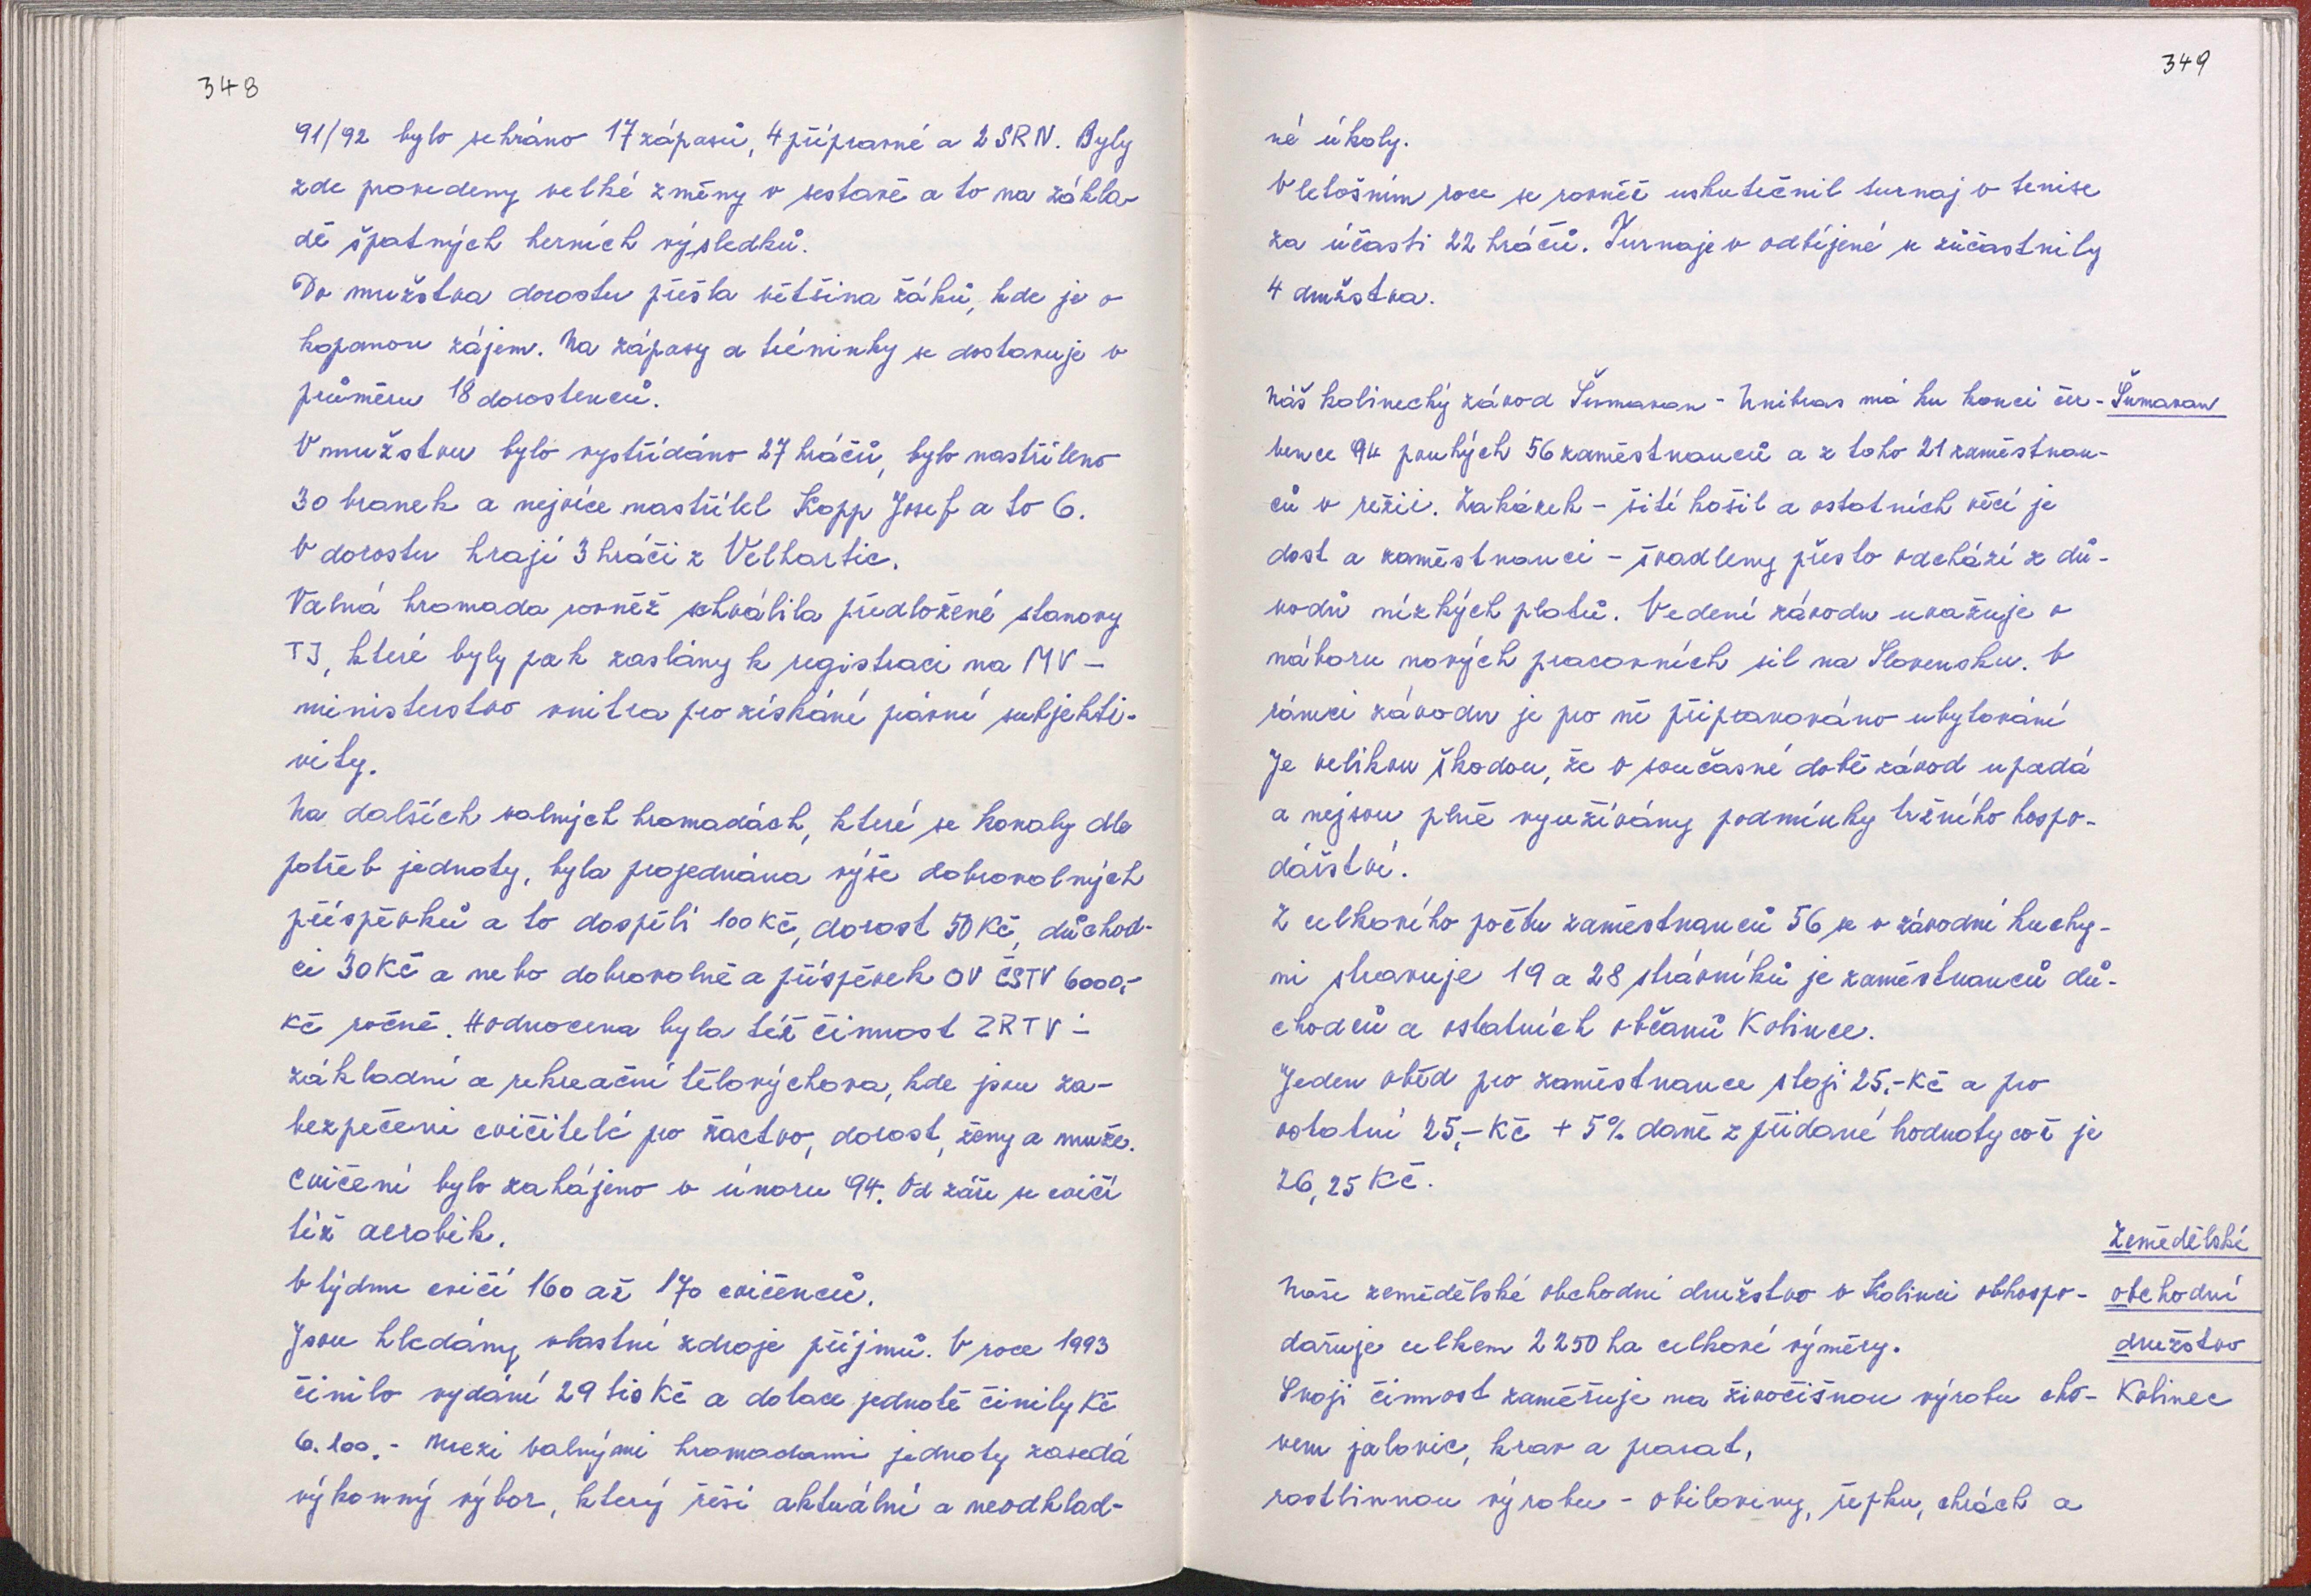 348
91/92 bylo sehráno 17 zápasů, 4 přípravné a 2 SRN. Byly
zde provedeny velké změny v sestavě a to na zákla-
dě špatných herních výsledků.
Do mužstva dorostu přešla většina žáků, kde je o
kopanou zájem. Na zápasy a tréninky se dostavuje v
průměru 18 dorostenců.
V mužstvu bylo vystřídáno 27 hráčů, bylo nastříleno
30 branek a nejvíce nastřílel Kopp Josef a to 6.
V dorostu hrají 3 hráči z Velhartic.
Valná hromada rovněž schválila předložené stanovy
TJ, které byly pak zaslány k registraci na MV -
ministerstvo vnitra pro získání právní subjekti-
vity.
Na dalších valných hromadách, které se konaly dle
potřeb jednoty, byla projednána výše dobrovolných
příspěvků a to dospělí 100 Kč, dorost 50 Kč, důchod-
ci 30 Kč a nebo dobrovolně a příspěvek OV ČSTV 6000,-
Kč ročně. Hodnocena byla též činnost ZRTV -
základní a rekreační tělovýchova, kde jsou za-
bezpečeni cvičitelé pro žactvo, dorost, ženy a muže.
Cvičení bylo zahájeno v únoru 94. Od září se cvičí
též aerobik.
V týdnu cvičí 160 až 170 cvičenců.
Jsou hledány vlastní zdroje příjmů. V roce 1993
činilo vydání 29 tis Kč a dotace jednotě činily Kč
6.100.- Mezi valnými hromadami jednoty zasedá
výkonný výbor, který řeší aktuální a neodklad-
349
né úkoly.
V letošním roce se rovněž uskutečnil turnaj v tenise
za účasti 22 hráčů. Turnaje v odbíjené se zúčastnily
4 družstva.
Náš kolinecký závod Šumavan - Unibras má ku konci čer- Šumavan
vence 94 pouhých 56 zaměstnanců a z toho 21 zaměstnan-
ců v režii. Zakázek - šití košil a ostatních věcí je
dost a zaměstnanci - švadleny přesto odchází z dů-
vodů nízkých platů. Vedení závodu uvažuje o
náboru nových pracovních sil na Slovensku. V
rámci závodu je pro ně připravováno ubytování
Je velikou škodou, že v současné době závod upadá
a nejsou plně využívány podmínky tržního hospo-
dářství.
Z celkového počtu zaměstnanců 56 se v závodní kuchy-
ni stravuje 19 a 28 strávníků je zaměstnanců dů-
chodců a ostatních občanů Kolince.
Jeden oběd pro zaměstnance stojí 25,- Kč a pro
ostatní 25,- Kč + 5% daně z přidané hodnoty což je
26,25 Kč.
Zemědělské
Naše zemědělské obchodní družstvo v Kolinci obhospo- obchodní
dařuje celkem 2250 ha celkové výměry. družstvo
Svoji činnost zaměřuje na živočišnou výrobu cho- Kolinec
vem jalovic, krav a prasat,
rostlinnou výrobu - obiloviny, řepku, chrách a